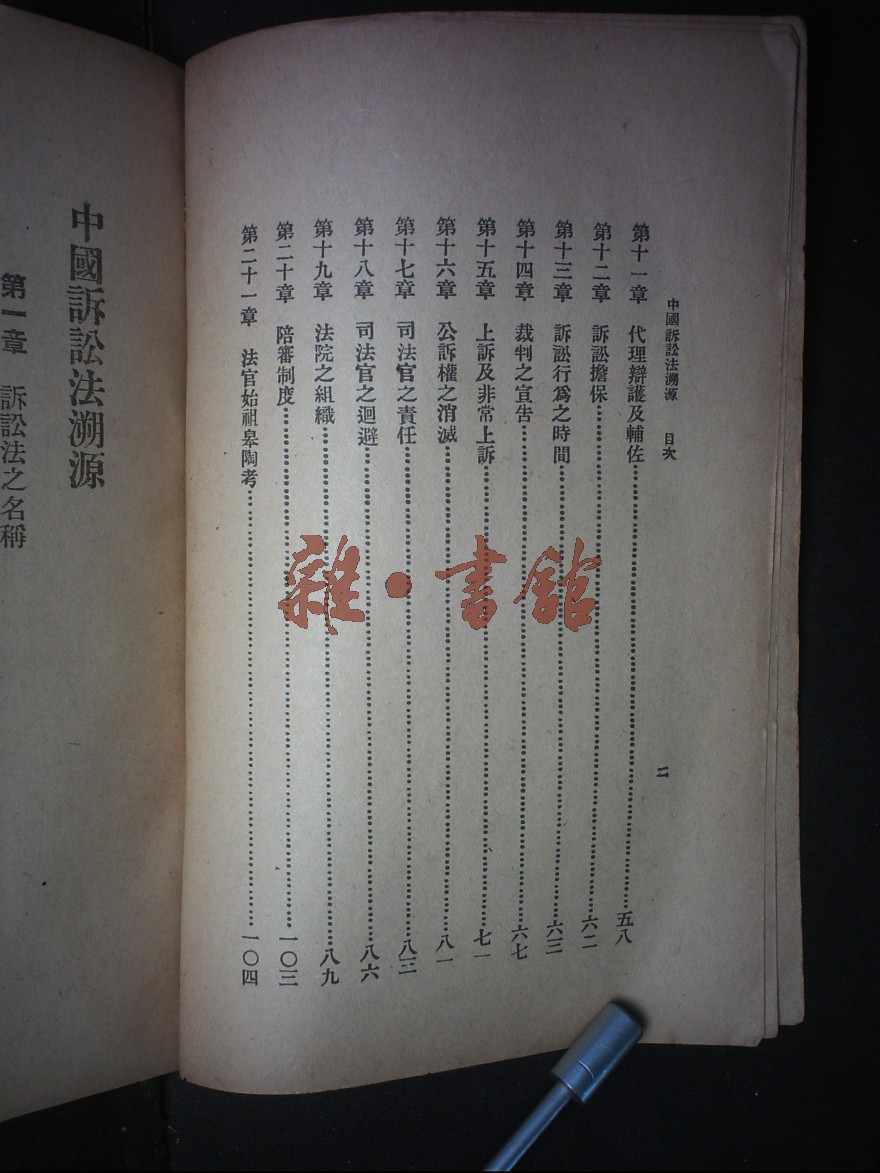 中國訴訟法溯源 目次 二
第十一章 代理辯護及輔佐……五八
第十二章 訴訟擔保……六二
第十三章 訴訟行爲之時間……六三
第十四章 裁判之宣告……六七
第十五章 上訴及非常上訴……七一
第十六章 公訴權之消滅……八一
第十七章 司法官之責任……八三
第十八章 司法官之迴避……八六
第十九章 法院之組織……八九
第二十章 陪審制度……一〇三
第二十一章 法官始祖皋陶考……一〇四
中國訴訟法溯源
第一章 訴訟法之名稱
雜·書館